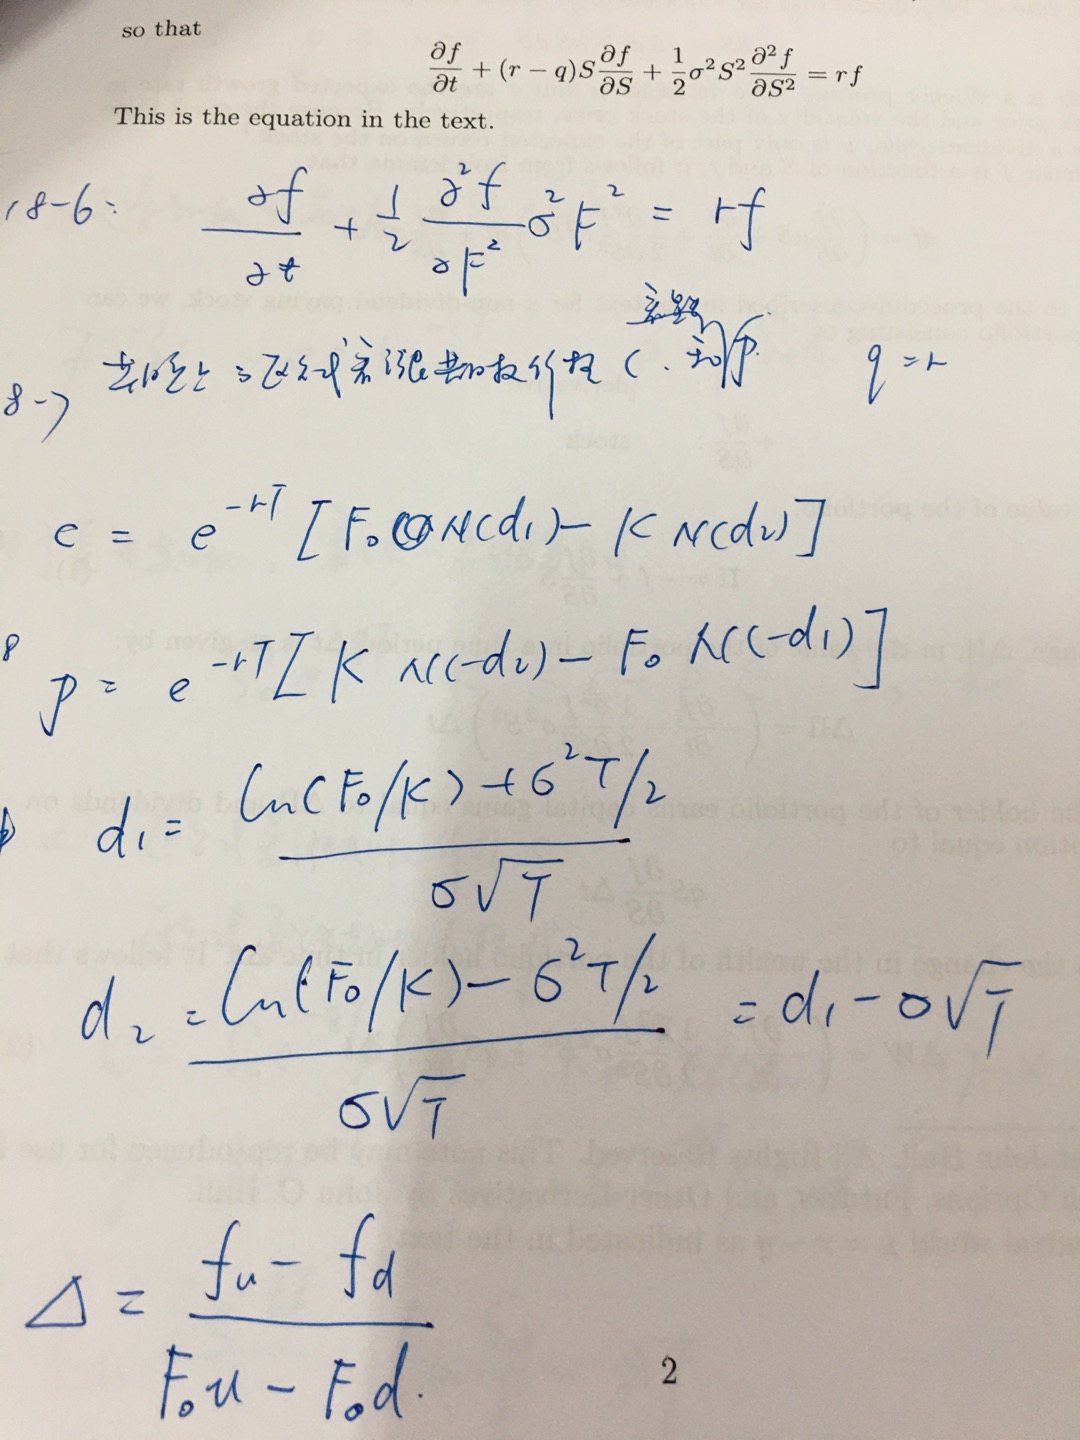 so that
∂f/∂t + (r − q)S ∂f/∂S + 1/2 σ²S² ∂²f/∂S² = rf
This is the equation in the text.
18-6: ∂f/∂t + 1/2 ∂²f/∂F² σ²F² = rf
和 p. q = r
8-7
c = e^{-rT} [F₀ N(d₁) − K N(d₂)]
8
p = e^{-rT} [K N(-d₂) − F₀ N(-d₁)]
d₁ = (ln(F₀/K) + σ²T/2) / (σ√T)
d₂ = (ln(F₀/K) − σ²T/2) / (σ√T) = d₁ − σ√T
Δ = (fu − fd) / (F₀u − F₀d).
2